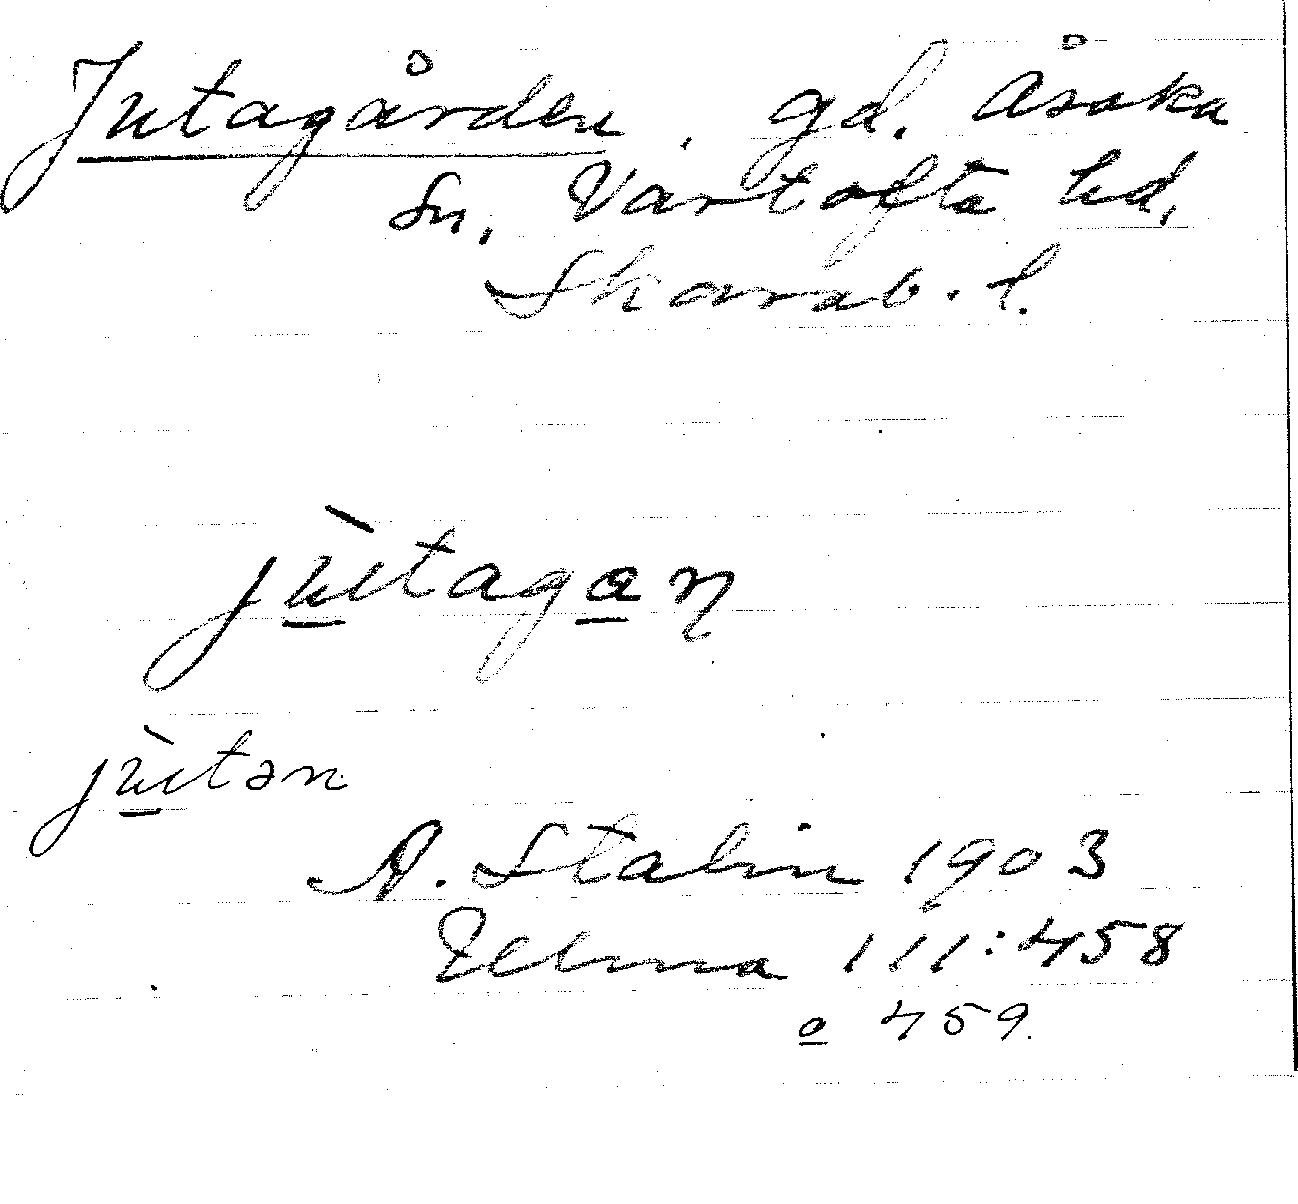 Jutagården, gd. Åsaka
Sn, Vartofta hd,
Skarab. l.
jùtagan
jùtən
A. Stalin 1903
Ulma 111:458
o 459.